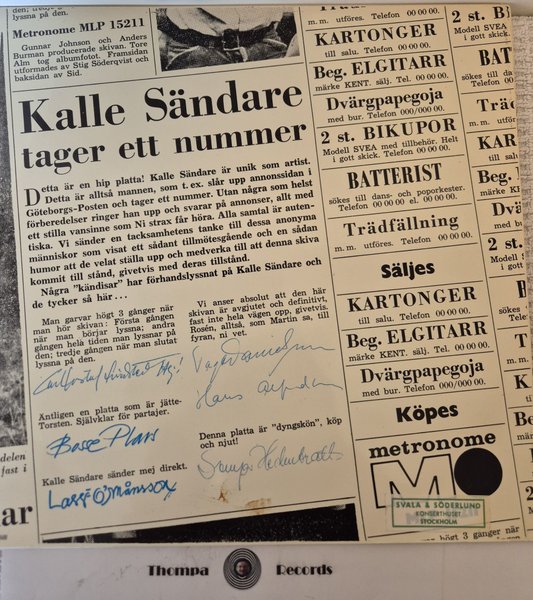 lyssna på den.
Metronome MLP 15211
Gunnar Johnson och Anders
Burman producerade skivan. Tore
Alm tog albumfotot. Framsidan
utformades av Stig Söderqvist och
baksidan av Sid.
Kalle Sändare
tager ett nummer
Detta är en hip platta! Kalle Sändare är unik som artist.
Detta är alltså mannen, som t. ex. slår upp annonssidan i
Göteborgs-Posten och tager ett nummer. Utan några som helst
förberedelser ringer han upp och svarar på annonser, allt med
ett stilla vansinne som Ni strax får höra. Alla samtal är auten-
tiska. Vi sänder en tacksamhetens tanke till dessa anonyma
människor som visat ett sådant tillmötesgående och en sådan
humor att de velat ställa upp och medverka till att denna skiva
kommit till stånd, givetvis med deras tillstånd.
Några "kändisar" har förhandslyssnat på Kalle Sändare och
de tycker så här...
Man garvar högt 3 gånger när
man hör skivan: Första gången
när man börjar lyssna; andra
gången hela tiden man lyssnar på
den; tredje gången när man slutat
lyssna på den.
Carl-Gustaf Lindstedt
Äntligen en platta som är jätte-
Torsten. Självklar för partajer.
Bosse Plars
Kalle Sändare sänder mej direkt.
Lasse O'Månsson
Vi anser absolut att den här
skivan är avgjutet och definitivt,
fast inte hela vägen opp, givetvis.
Rosén, alltså, som Martin sa, till
fyran, ni vet.
Tage Danielsson
Hans Alfredson
Denna platta är "dyngskön", köp
och njut!
m. m. utföres. Telefon 00 00 00.
KARTONGER
till salu. Telefon 00 00 00.
Beg. ELGITARR
märke KENT. sälj. Tel. 00 00 00.
Dvärgpapegoja
med bur. Telefon 000/000 00.
2 st. BIKUPOR
Modell SVEA med tillbehör. Helt
i gott skick. Telefon 00 00 00.
BATTERIST
sökes till dans- och poporkester.
Telefon 00 00 00 el. 00 00 00.
Trädfällning
m. m. utföres. Telefon 00 00 00.
Säljes
KARTONGER
till salu. Telefon 00 00 00.
Beg. ELGITARR
märke KENT. sälj. Tel. 00 00 00.
Dvärgpapegoja
med bur. Telefon 000/000 00.
Köpes
metronome
SVALA & SÖDERLUND
KONSERTHUSET
STOCKHOLM
2 st. B
Modell SVEA
i gott skick.
BATT
sökes till da
Telefon 00
Träd
m. m. utföre
KART
till salu.
Beg. E
märke KENT
Dvä
med bur.
2 st.
högt 3 gånger när
Thompa Records